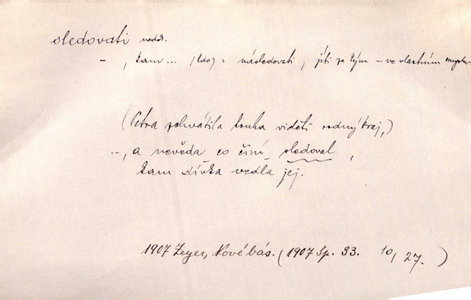 sledovati nedok.
–, kam... (kdo) = následovati, jíti za kým – ve vlastním smyslu
(Petra zchvátila touha viděti rodný kraj,)
–, a nevěda co činí sledoval,
kam dívka vedla jej.
1907 Zeyer, Nové bás. (1907 Sp. 33. 10/27.)